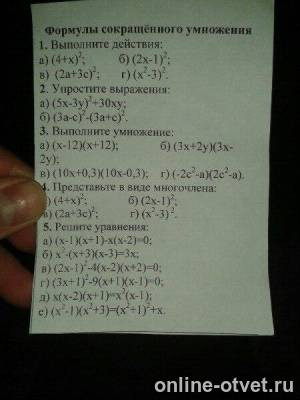 Формулы сокращённого умножения
1. Выполните действия:
а) (4+х)²; б) (2х-1)²;
в) (2а+3с)²; г) (х²-3)².
2. Упростите выражения:
а) (5х-3у)²+30ху;
б) (3а-с)²-(3а+с)².
3. Выполните умножение:
а) (х-12)(х+12); б) (3х+2у)(3х-
2у);
в) (10х+0,3)(10х-0,3); г) (-2с²-а)(2с²-а).
4. Представьте в виде многочлена:
) (4+х)²; б) (2х-1)²;
в) (2а+3с)²; г) (х²-3)².
5. Решите уравнения:
а) (х-1)(х+1)-х(х-2)=0;
б) х²-(х+3)(х-3)=3х;
в) (2х-1)²-4(х-2)(х+2)=0;
г) (3х+1)²-9(х+1)(х-1)=0;
д) х(х-2)(х+1)=х²(х-1);
е) (х²-1)(х²+3)=(х²+1)²+х.
online-otvet.ru